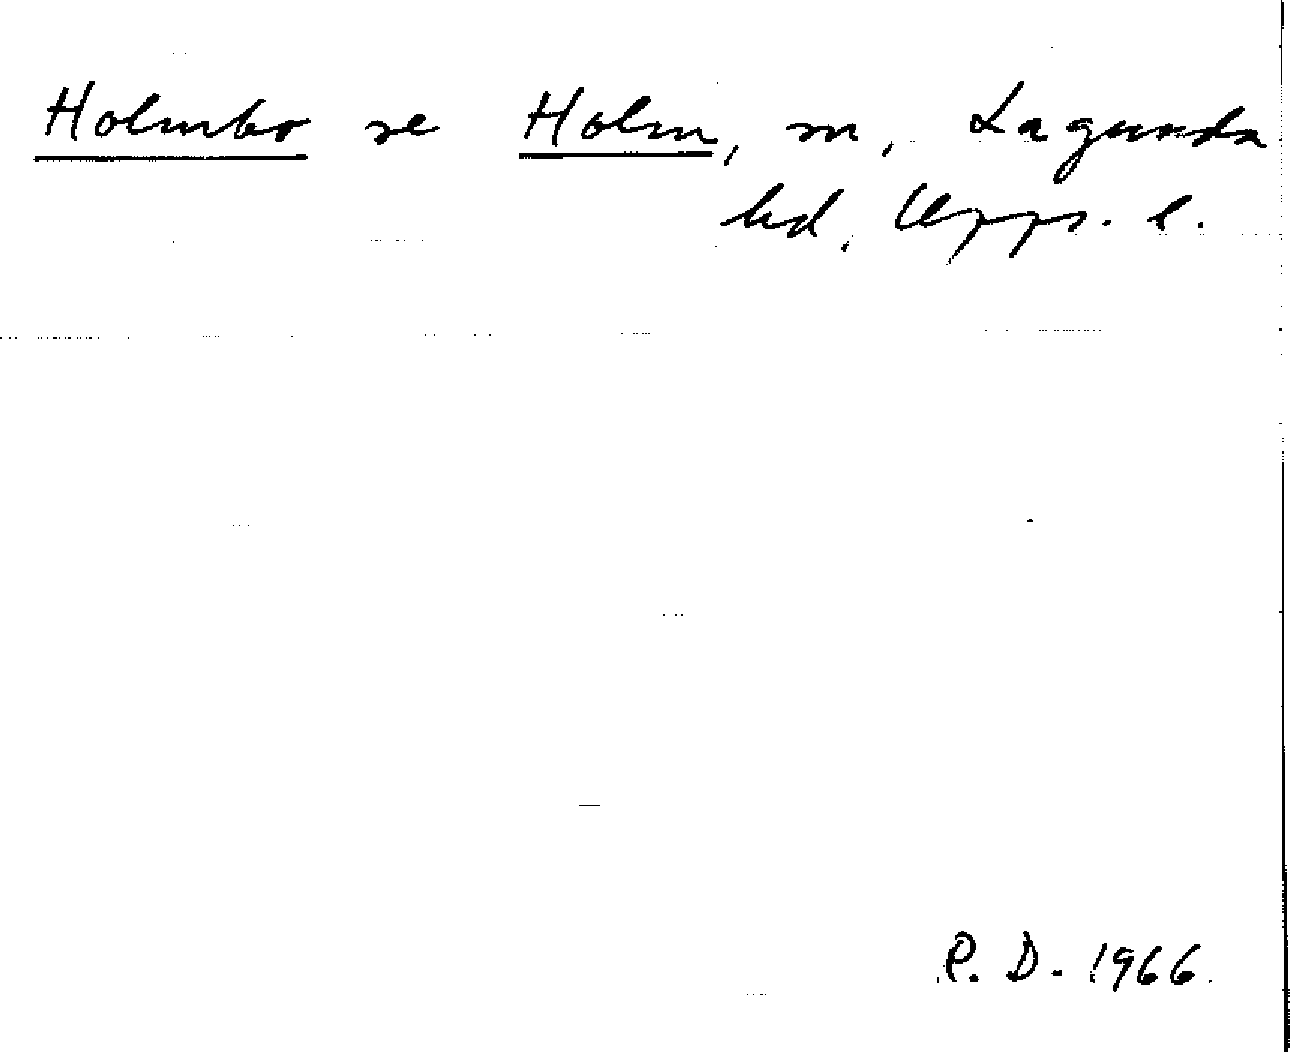 Holmbo se Holm, sn, Lagunda
hd, Upps. l.
R. D. 1966.